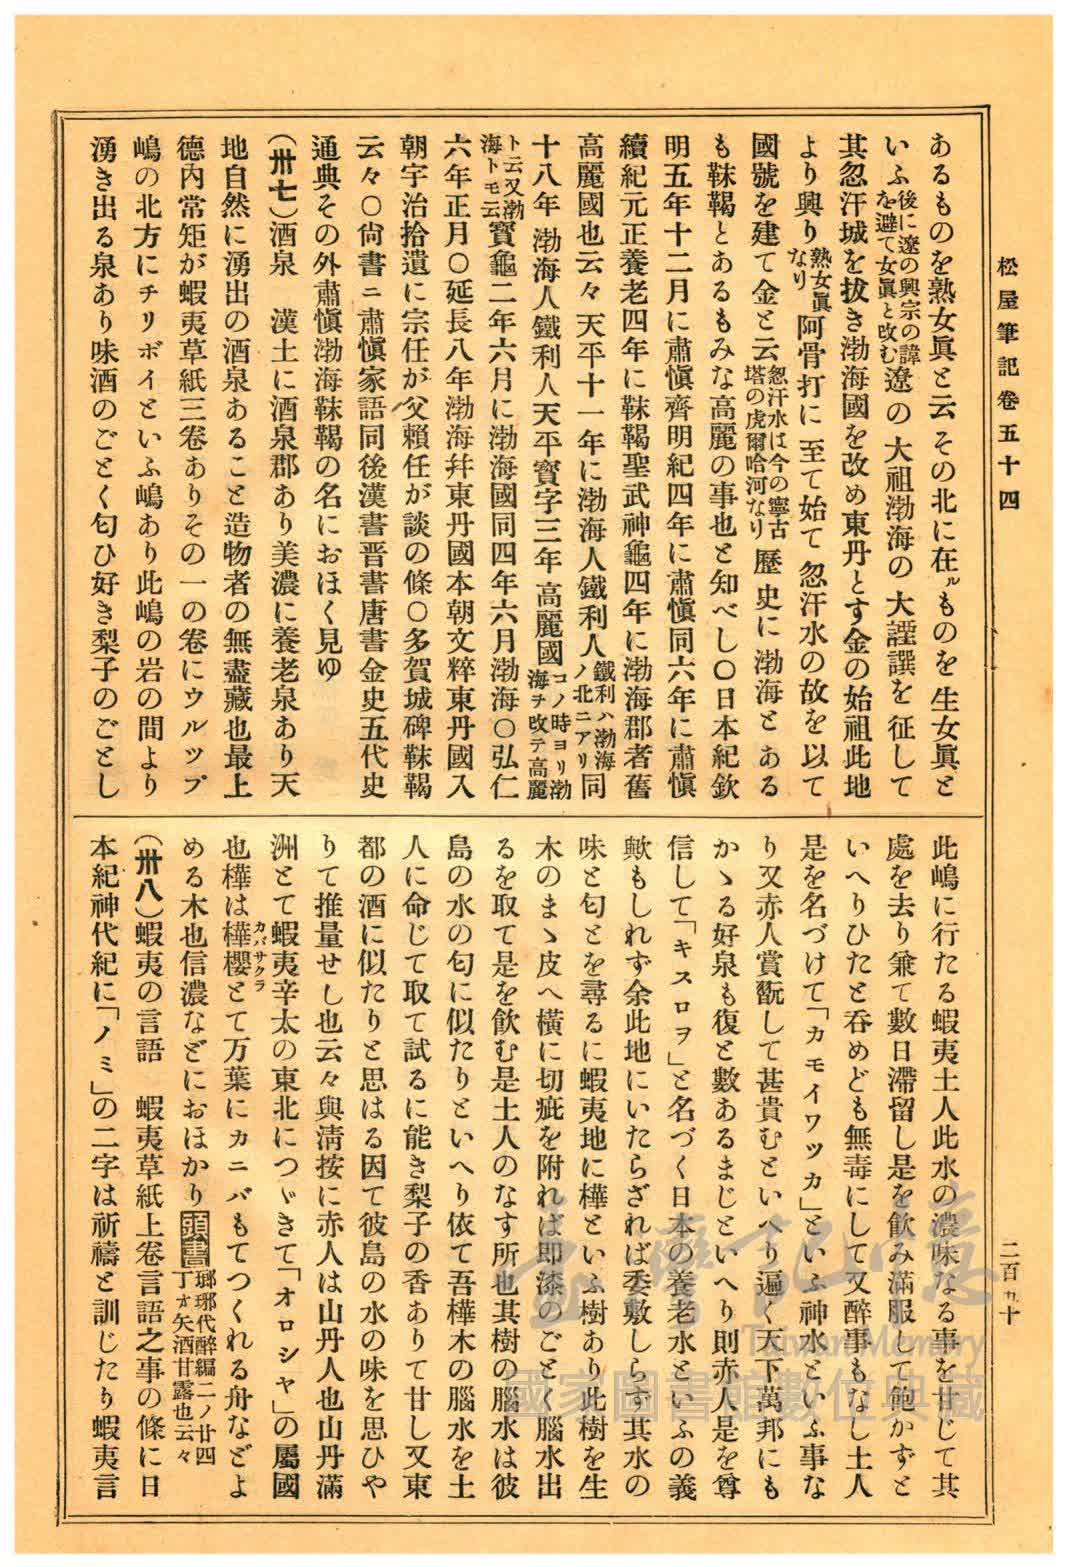 松屋筆記卷五十四
二百九十
あるものを熟女眞と云その北に在ルものを生女眞と
いふ後に遼の興宗の諱を避て女眞と改む遼の大祖渤海の大諲譔を征して
其忽汗城を拔き渤海國を改め東丹とす金の始祖此地
より興り熟女眞なり阿骨打に至て始て忽汗水の故を以て
國號を建て金と云忽汗水は今の寧古塔の虎爾哈河なり歷史に渤海とある
も靺鞨とあるもみな高麗の事也と知べし〇日本紀欽
明五年十二月に肅愼齊明紀四年に肅愼同六年に肅愼
續紀元正養老四年に靺鞨聖武神龜四年に渤海郡者舊
高麗國也云々天平十一年に渤海人鐵利人鐵利ハ渤海ノ北ニアリ同
十八年渤海人鐵利人天平寶字三年高麗國コノ時ヨリ渤海ヲ改テ高麗
ト云又渤海トモ云寶龜二年六月に渤海國同四年六月渤海〇弘仁
六年正月〇延長八年渤海幷東丹國本朝文粹東丹國入
朝宇治拾遺に宗任が父賴任が談の條〇多賀城碑靺鞨
云々〇尙書ニ肅愼家語同後漢書晋書唐書金史五代史
通典その外肅愼渤海靺鞨の名におほく見ゆ
(卅七)酒泉　漢土に酒泉郡あり美濃に養老泉あり天
地自然に湧出の酒泉あること造物者の無盡藏也最上
德內常矩が蝦夷草紙三卷ありその一の卷にウルップ
嶋の北方にチリボイといふ嶋あり此嶋の岩の間より
湧き出る泉あり味酒のごとく匂ひ好き梨子のごとし
此嶋に行たる蝦夷土人此水の濃味なる事を甘じて其
處を去り兼て數日滯留し是を飮み滿服して飽かずと
いへりひたと呑めども無毒にして又醉事もなし土人
是を名づけて「カモイワツカ」といふ神水といふ事な
り又赤人賞翫して甚貴むといへり遍く天下萬邦にも
かゝる好泉も復と數あるまじといへり則赤人是を尊
信して「キスロヲ」と名づく日本の養老水といふの義
歟もしれず余此地にいたらざれば委敷しらす其水の
味と匂とを尋るに蝦夷地に樺といふ樹あり此樹を生
木のまゝ皮へ橫に切疵を附れば卽漆のごとく腦水出
るを取て是を飮む是土人のなす所也其樹の腦水は彼
島の水の匂に似たりといへり依て吾樺木の腦水を土
人に命じて取て試るに能き梨子の香ありて甘し又東
都の酒に似たりと思はる因て彼島の水の味を思ひや
りて推量せし也云々與淸按に赤人は山丹人也山丹滿
洲とて蝦夷辛太の東北につゞきて「オロシャ」の屬國
也樺は樺櫻カバサクラとて万葉にカニバもてつくれる舟などよ
める木也信濃などにおほかり頭書瑯琊代醉編二ノ廿四丁ォ矢酒甘露也云々
(卅八)蝦夷の言語　蝦夷草紙上卷言語之事の條に日
本紀神代紀に「ノミ」の二字は祈禱と訓じたり蝦夷言
臺灣記憶
Taiwan Memory
國家圖書館數位典藏